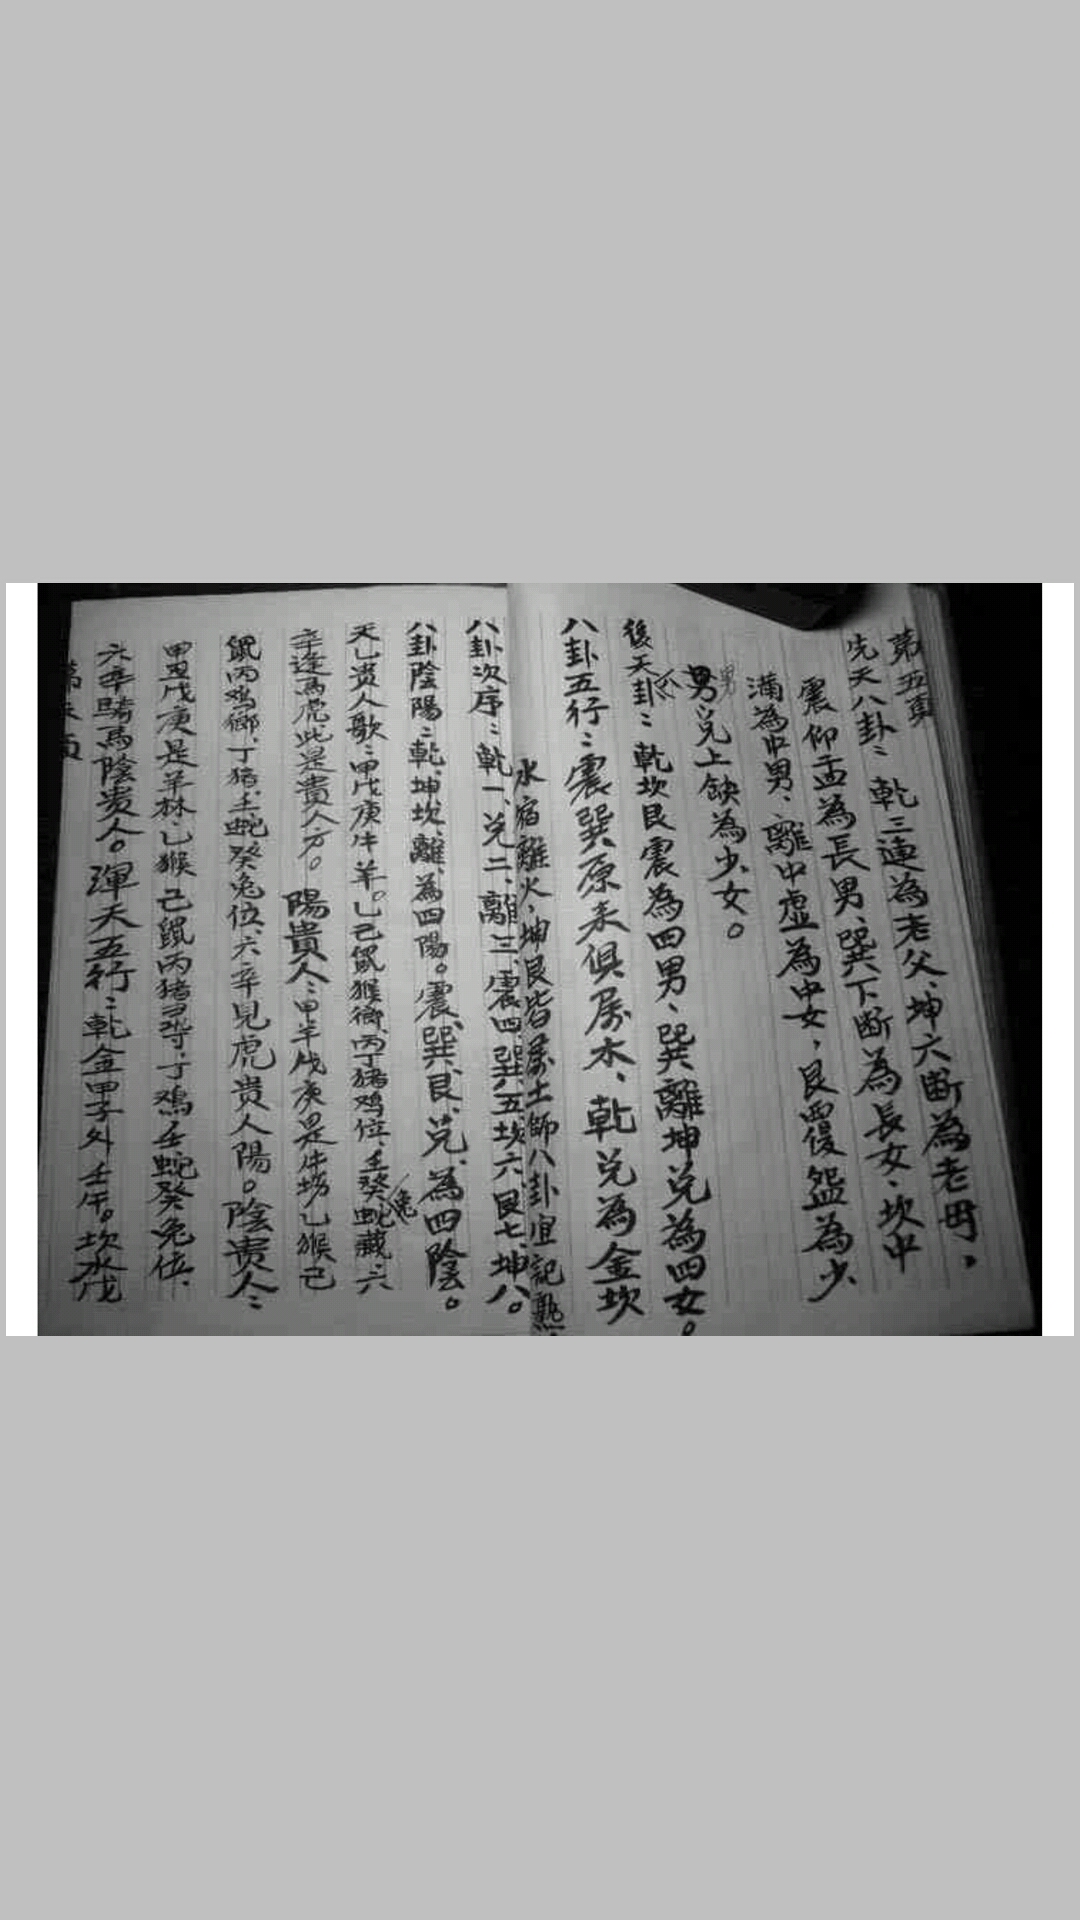 第五頁
先天八卦：乾三連為老父、坤六斷為老母，
震仰盂為長男、巽下斷為長女、坎中
滿為中男、離中虛為中女，艮覆盌為少
男
男、兌上缺為少女。
後天八卦：乾坎艮震為四男、巽離坤兌為四女。
八卦五行：震巽原來俱屬木、乾兌為金坎
水宿離火，坤艮皆屬土師八卦宜記熟，
八卦次序：乾一、兌二、離三、震四、巽五、坎六艮七、坤八。
八卦陰陽：乾、坤、坎、離、為四陽。震、巽、艮、兌、為四陰。
天乙贵人歌：甲戊庚牛羊。乙己鼠猴鄉、丙丁猪鸡位、壬癸兔蛇藏、六
辛逢馬虎、此是貴人方。陽貴人：甲羊戊庚是牛塲乙猴己
鼠丙鸡鄉、丁猪、壬蛇癸兔位、六辛見虎贵人陽。陰貴人：
甲丑戊庚是羊林、乙猴己鼠丙猪寻、丁鸡壬蛇癸兔位、
六辛騎馬陰贵人。渾天五行：乾金甲子外壬午。坎水戊